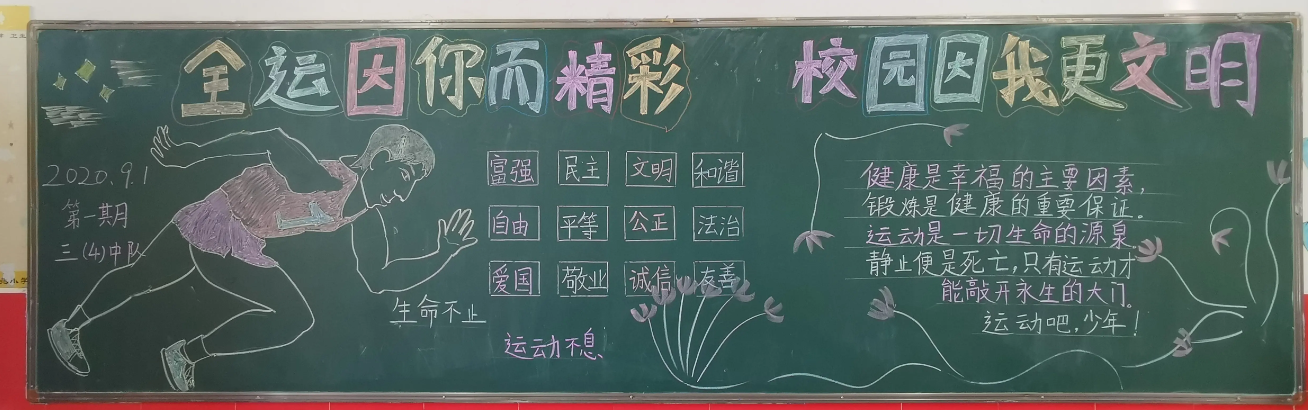 全运因你而精彩 校园因我更文明
2020.9.1
第一期月
三(4)中队
富强 民主 文明 和谐
自由 平等 公正 法治
爱国 敬业 诚信 友善
生命不止
运动不息
健康是幸福的主要因素,
锻炼是健康的重要保证。
运动是一切生命的源泉。
静止便是死亡,只有运动才
能敲开永生的大门。
运动吧,少年!